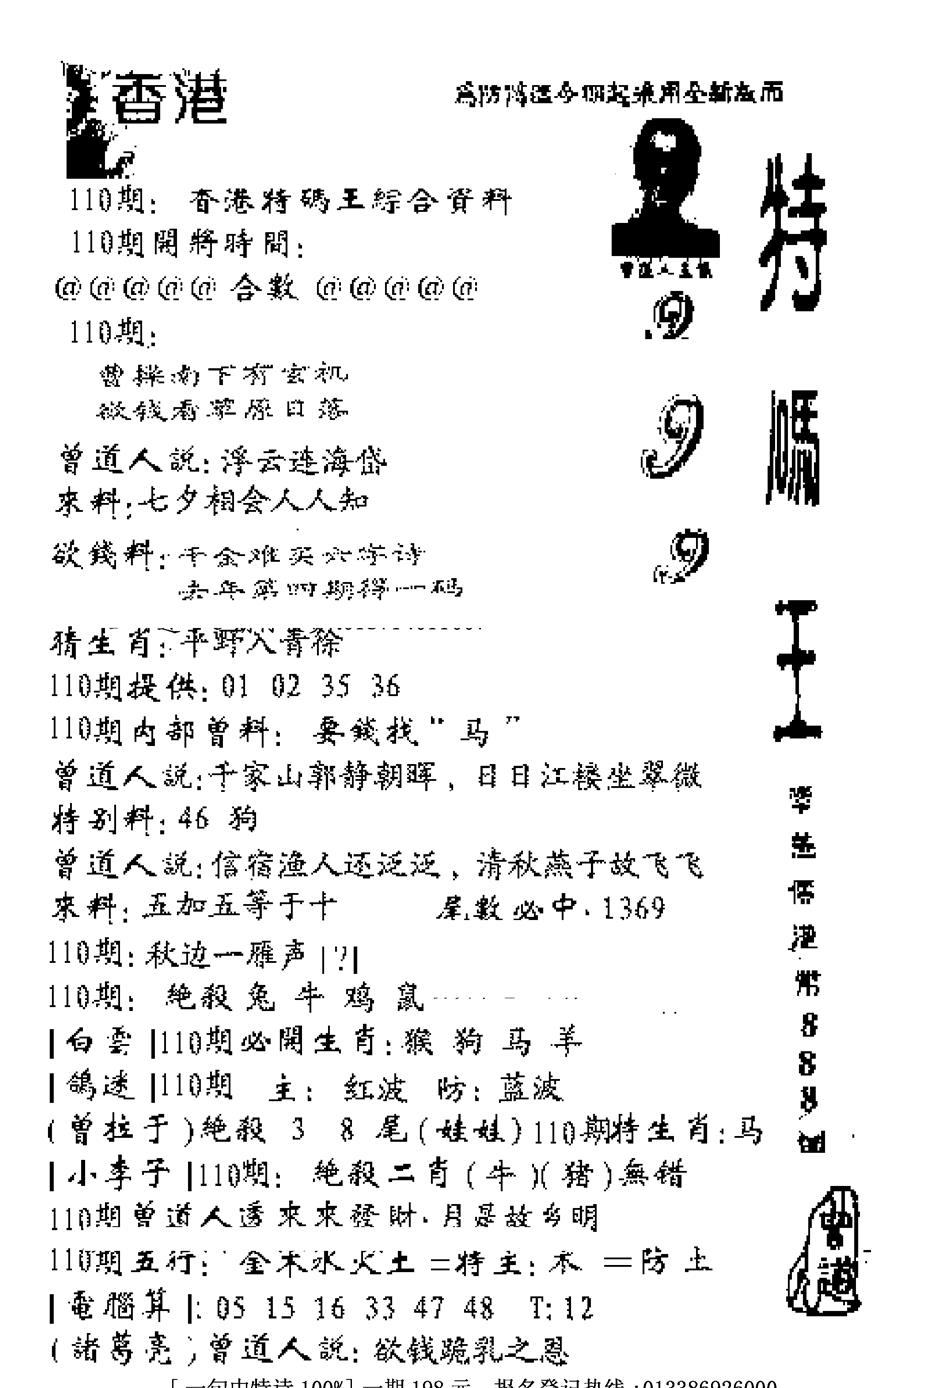 香港
為防偽造今期起采用全新版面
110期: 香港特碼王綜合資料
110期開將時間:
@@@@@ 合數 @@@@@
110期:
曹操南下有玄机
欲钱看草原日落
曾道人説:浮云连海岱
來料:七夕相会人人知
欲錢料:千金难买六字诗
去年第四期得一码
猜生肖:平野入青徐
110期提供:01 02 35 36
110期内部曾料: 要錢找“马”
曾道人説:千家山郭静朝晖,日日江楼坐翠微
特别料:46 狗
曾道人説:信宿渔人还泛泛,清秋燕子故飞飞
來料:五加五等于十 尾數必中.1369
110期:秋边一雁声|?|
110期: 絶殺 兔 牛 鸡 鼠
|白雲|110期必開生肖:猴 狗 马 羊
|鴿迷|110期 主: 红波 防: 蓝波
(曾拉于)絶殺 3 8 尾(娃娃)110期特生肖:马
|小李子|110期: 絶殺二肖(牛)(猪)無错
110期曾道人透來來發財.月是故乡明
110期五行: 金木水火土=特主:木 =防 土
|電腦算|:05 15 16 33 47 48 T:12
(諸葛亮)曾道人説:欲钱跪乳之恩
[一句中特诗100%]一期198元 报名登记热线:013386926000
曾道人主儀
9
9
9
特
碼
王
港
幣
8
8
8
圓
曾道